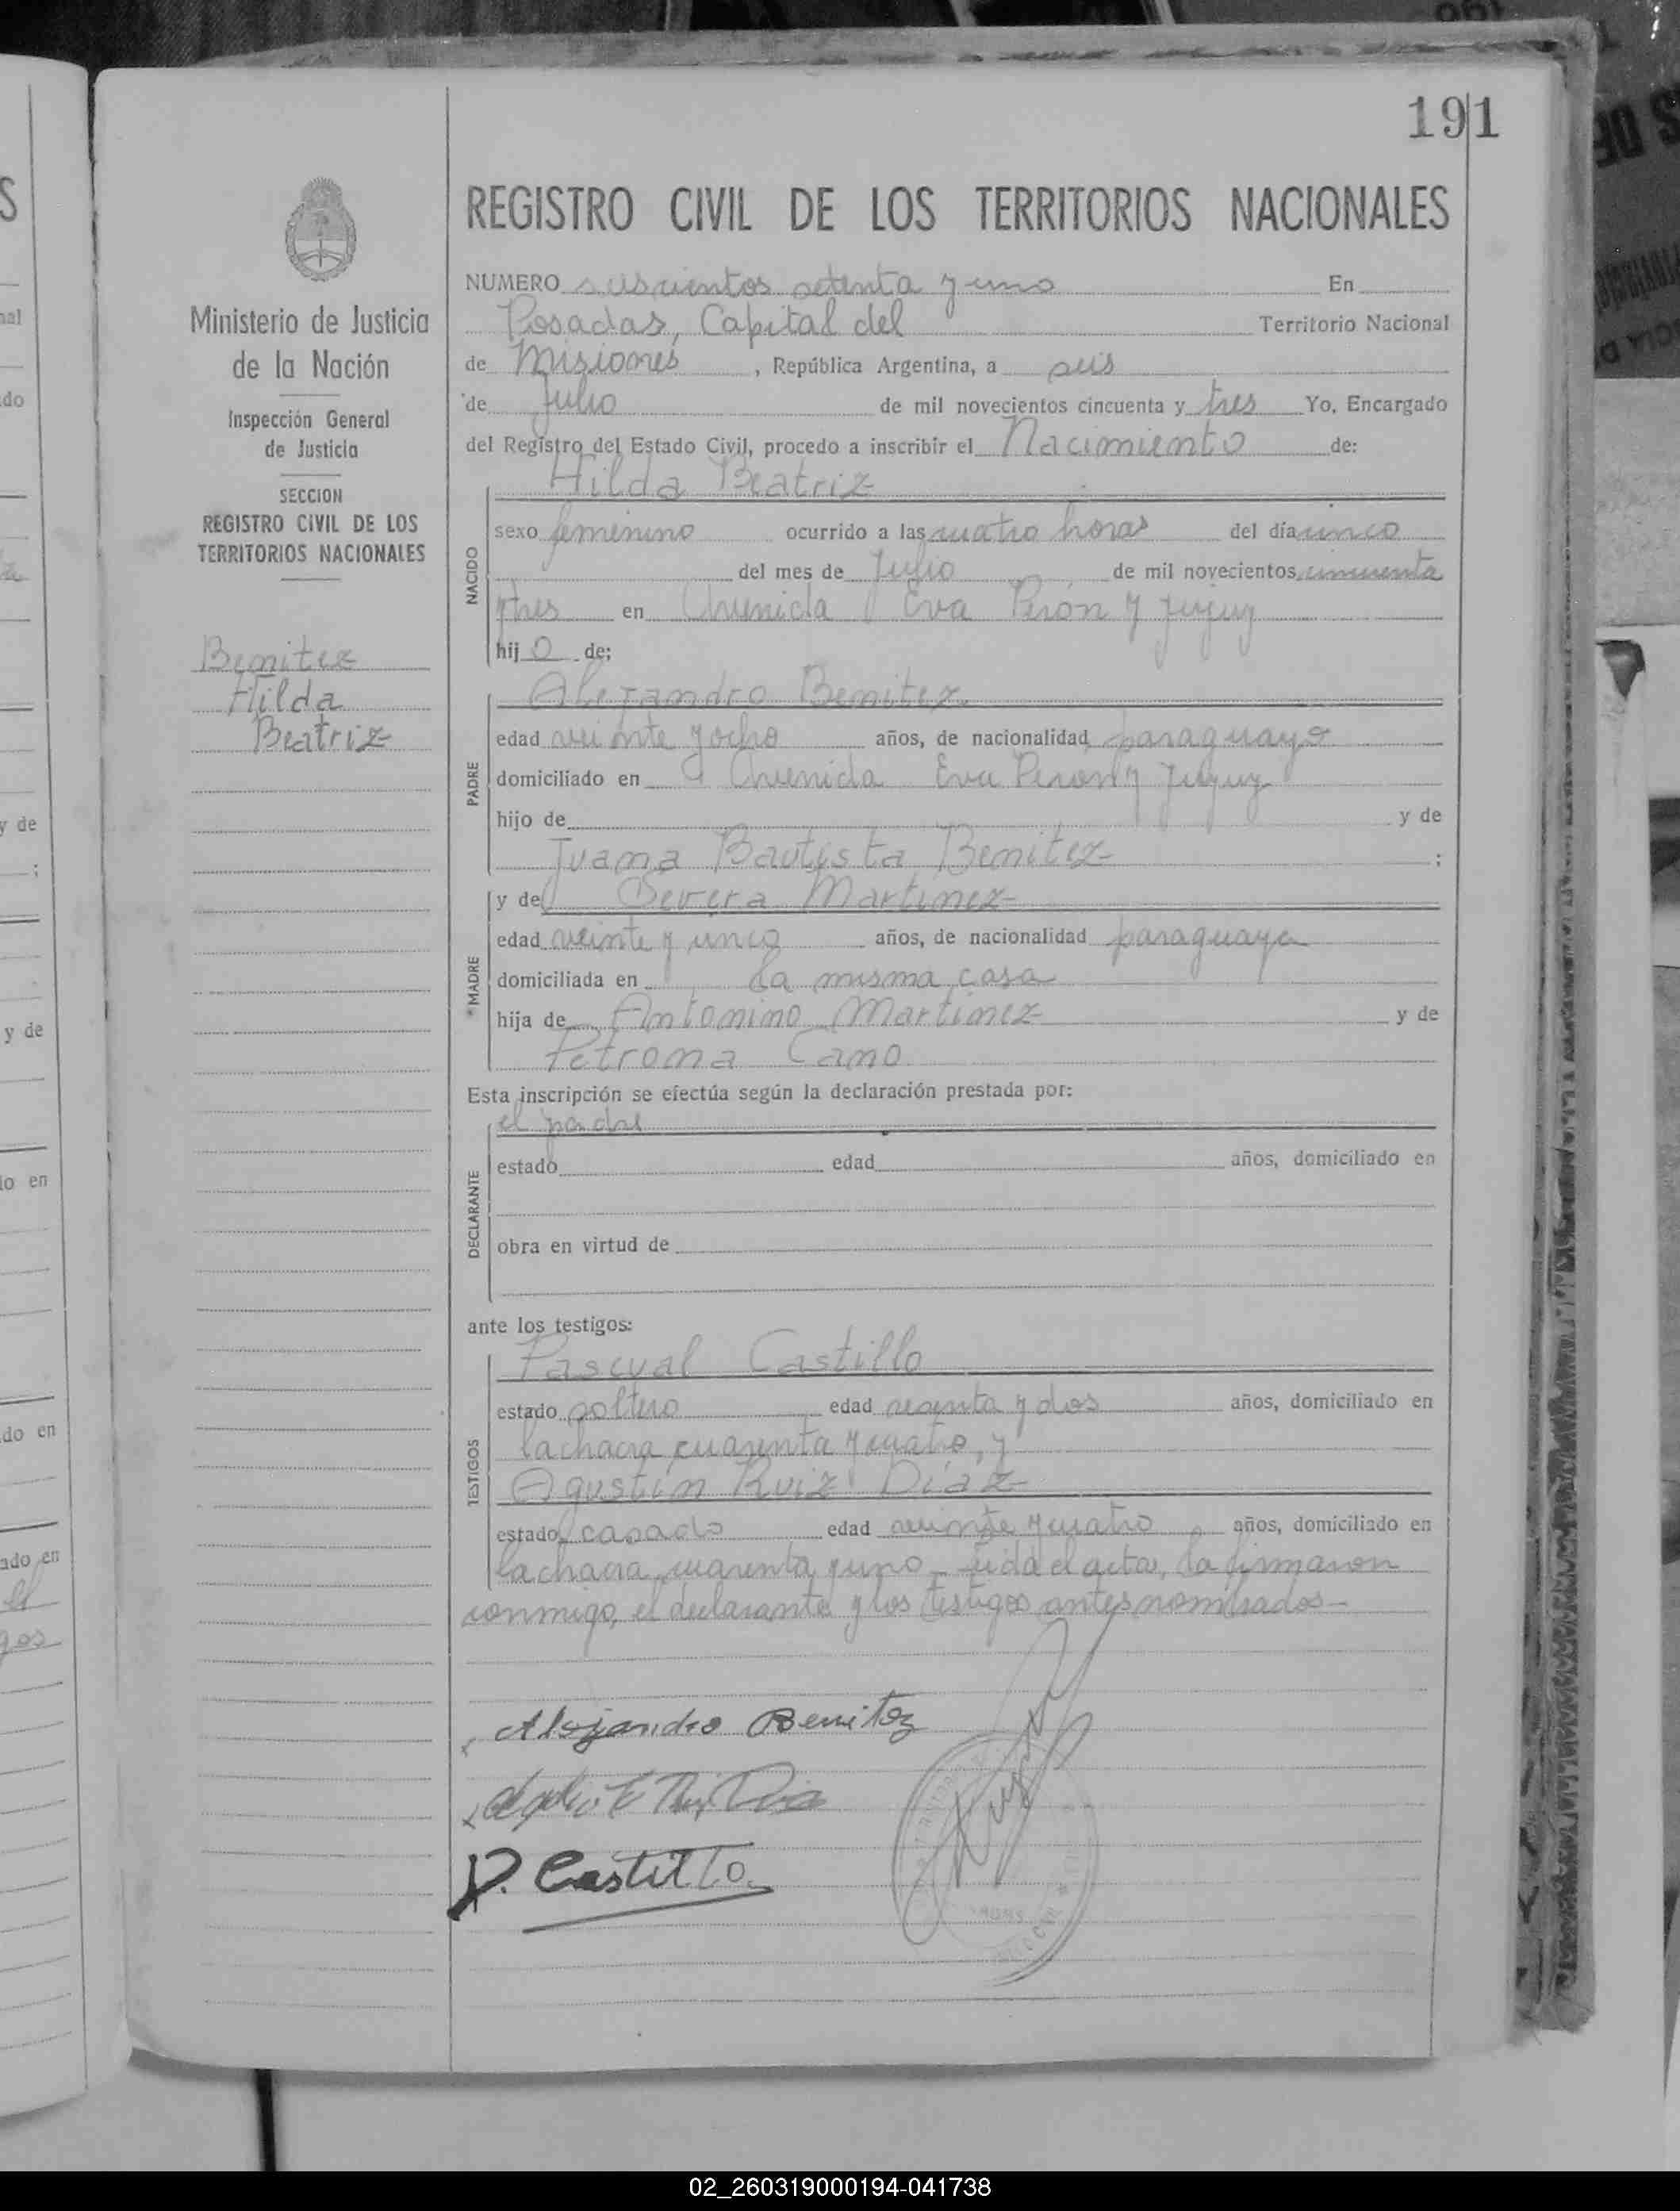 191
REGISTRO CIVIL DE LOS TERRITORIOS NACIONALES
Ministerio de Justicia
de la Nación
Inspección General
de Justicia
SECCION
REGISTRO CIVIL DE LOS
TERRITORIOS NACIONALES
Benitez
Hilda
Beatriz
NUMERO seiscientos setenta y uno En
Posadas, Capital del Territorio Nacional
de Misiones, República Argentina, a seis
de Julio de mil novecientos cincuenta y tres Yo, Encargado
del Registro del Estado Civil, procedo a inscribir el Nacimiento de:
Hilda Beatriz
NACIDO
sexo femenino ocurrido a las cuatro horas del día cinco
del mes de Julio de mil novecientos cincuenta
y tres en Avenida Eva Perón y Jujuy
hijo de;
Alejandro Benitez
PADRE
edad veinte y ocho años, de nacionalidad paraguayo
domiciliado en Avenida Eva Peron y Jujuy
hijo de y de
Juana Bautista Benitez ;
y de Severa Martinez
*MADRE
edad veinte y cinco años, de nacionalidad paraguaya
domiciliada en la misma casa
hija de Antonino Martinez y de
Petrona Cano
Esta inscripción se efectúa según la declaración prestada por:
el padre
DECLARANTE
estado edad años, domiciliado en
obra en virtud de
ante los testigos:
Pascual Castillo
TESTIGOS
estado soltero edad y dos años, domiciliado en
la chacra cuarenta y cuatro, y
Agustín Ruiz Diaz
estado casado edad veinte y cuatro años, domiciliado en
la chacra cuarenta y uno - Leida el acta, la firmaron
conmigo, el declarante y los testigos antes nombrados-
Alejandro Benitez
P. Castillo
02_260319000194-041738